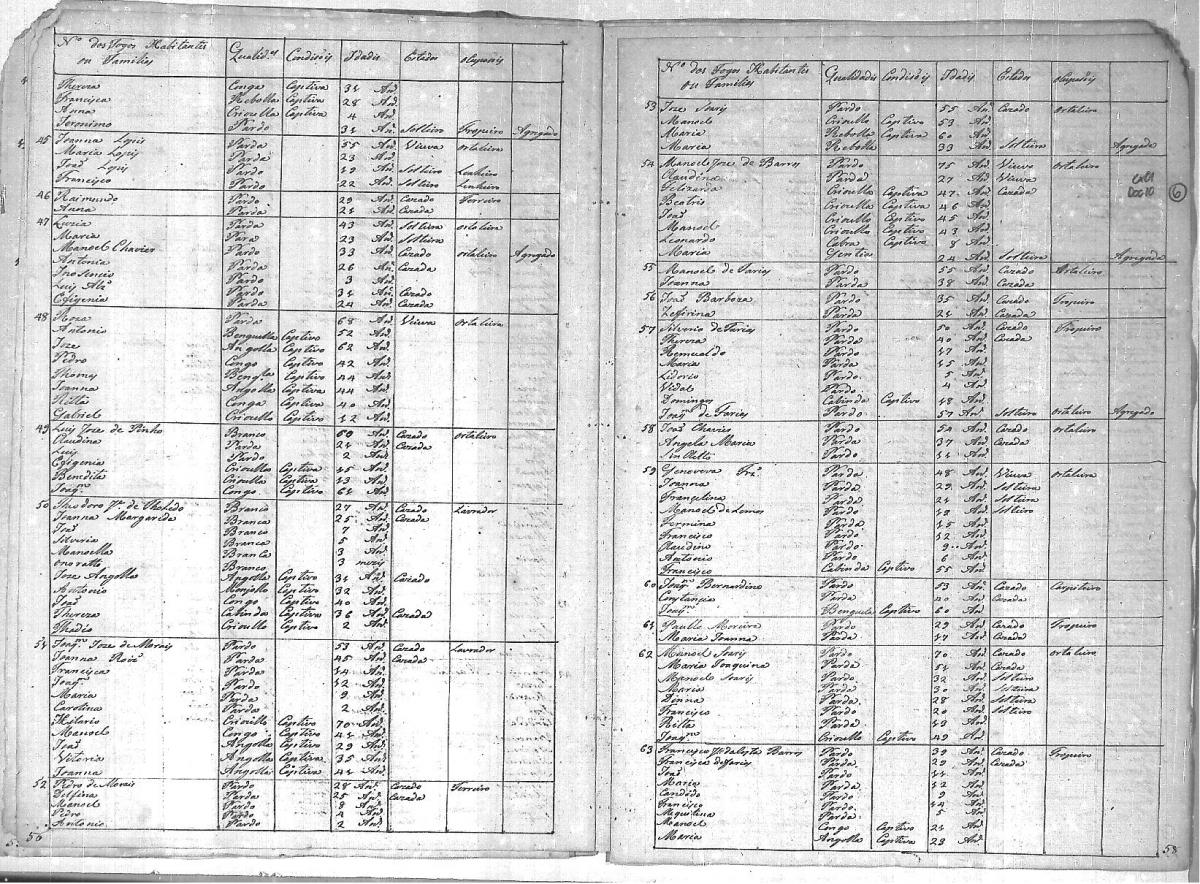 Nº dos Fogos Habitantes ou Familias Qualid.es Condisois Idadis Estados Ocupasois
Thereza Conga Captiva 31 An.
Francisca Rebolla Captiva 28 An.
Anna Crioulla Captiva 4 An.
Jeronimo Pardo 31 An. Solteiro Tropeiro Agregado
45 Joanna Lopis Parda 55 An. Viuva Ortaleira
Maria Lopis Parda 23 An.
Joaõ Lopis Pardo 19 An. Solteiro
Francisco Pardo 22 An. Solteiro
46 Raimundo Pardo 29 An. Cazado Ferreiro
Anna Parda 21 An. Cazada
47 Luzia Parda 43 An. Solteira Ortaleira
Maria Para 23 An. Solteira
Manoel Chavier Pardo 33 An. Cazado Ortaleiro Agregado
Antonia Parda 26 An. Cazada
Inosencio Pardo 3 An.
Luis Alz. Pardo 31 An. Cazado
Efigenia Parda 24 An. Cazada
48 Roza Parda 68 An. Viuva Ortaleira
Antonio Benguella Captivo 52 An.
Joze Angolla Captivo 62 An.
Pedro Congo Captivo 42 An.
Thomes Beng.la Captivo 44 An.
Joanna Angolla Captiva 44 An.
Ritta Conga Captiva 40 An.
Gabriel Crioullo Captivo 12 An.
49 Luis Joze de Pinho Branco 60 An. Cazado Ortaleiro
Claudina Parda 21 An. Cazada
Luis Pardo 2 An.
Efigenia Crioulla Captiva 45 An.
Bendita Crioulla Captiva 13 An.
Joaq.m Congo Captivo 61 An.
50 Theodoro de Branco 27 An. Cazado Lavrador
Joanna Margarida Branca 25 An. Cazada
Joaõ Branco 7 An.
Silveria Branca 5 An.
Manoella Branca 3 An.
Onoratto Branco 3 mezis
Joze Angolla Angolla Captivo 31 An. Cazado
Antonio Monjollo Captivo 32 An.
Joaõ Congo Captivo 40 An.
Thereza Cabinda Captiva 36 An. Cazada
Thadio Crioullo Captivo 2 An.
51 Joaq.m Joze de Morais Pardo 53 An. Cazado Lavrador
Joanna Roiz Parda 45 An. Cazada
Francisca Parda 14 An.
Joaq.m Pardo 12 An.
Maria Parda 9 An.
Carolina Parda 2 An.
Hilario Crioullo Captivo 70 An.
Manoel Congo Captivo 41 An.
Joaõ Angolla Captivo 29 An.
Vitoria Angolla Captiva 35 An.
Joanna Angolla Captiva 41 An.
52 Pedro de Morais Pardo 28 An. Cazado Ferreiro
Delfina Parda 25 An. Cazada
Manoel Pardo 8 An.
Pedro Pardo 4 An.
Antonio Pardo 2 An.
56
Nº dos Fogos Habitantes ou Familias Qualidadis Condisois Idadis Estados Ocupasois
53 Joze Soaris Pardo 55 An. Cazado Ortaleiro
Manoel Crioullo Captivo 53 An.
Maria Rebolla Captiva 60 An.
Maria Rebolla 33 An. Solteira Agregada
54 Manoel Joze de Barros Pardo 75 An. Viuvo Ortaleiro
Claudina Parda 27 An. Viuva
Felizarda Crioulla Captiva 47 An. Cazada
Beatris Crioulla Captiva 46 An.
Joaõ Crioullo Captivo 45 An.
Manoel Crioullo Captivo 43 An.
Leonardo Cabra Captivo 8 An.
Maria Gentia 24 An. Solteira Agregada
55 Manoel de Farias Pardo 55 An. Cazado Ortaleiro
Joanna Parda 58 An. Cazada
56 Joaõ Barboza Pardo 35 An. Cazado Tropeiro
Zeferina Parda 21 An. Cazada
57 Silverio de Farias Pardo 50 An. Cazado Tropeiro
Thereza Parda 40 An. Cazada
Remualdo Pardo 17 An.
Maria Parda 15 An.
Lidorio Pardo 5 An.
Vidal Pardo 4 An.
Domingos Cabinda Captivo 18 An.
Joaq.m de Farias Pardo 57 An. Solteiro Ortaleiro Agregado
58 Joaõ Chavier Pardo 54 An. Cazado Ortaleiro
Angela Maria Parda 37 An. Cazada
Pardo 11 An.
59 Genoveva Parda 48 An. Viuva Ortaleira
Joanna Parda 29 An. Solteira
Françelina Parda 21 An. Solteira
Manoel de Lemos Pardo 18 An. Solteiro
Fermina Parda 15 An.
Francisco Pardo 12 An.
Claudino Pardo 9 An.
Antonio Pardo 6 An.
Francisco Cabinda Captivo 55 An.
60 Joaq.m Bernardino Pardo 53 An. Cazado Carpiteiro
Constancia Parda 40 An. Cazada
Joaq.m Benguela Captivo 60 An.
61 Paullo Moreira Pardo 29 An. Cazado Tropeiro
Maria Joanna Parda 17 An. Cazada
62 Manoel Soaris Pardo 70 An. Cazado Ortaleiro
Maria Joaquina Parda 51 An. Cazada
Manoel Soaris Pardo 32 An. Solteiro
Maria Parda 30 An. Solteira
Parda 28 An. Solteira
Francisco Pardo 20 An. Solteiro
Ritta Parda 19 An.
Joaq.m Crioullo Captivo 49 An.
63 Francisco Barros Pardo 39 An. Cazado Tropeiro
Francisca de Farias Parda 29 An. Cazada
Joaõ Pardo 11 An.
Maria Parda 12 An.
Candido Pardo 9 An.
Francisco Pardo 14 An.
Miquilina Parda 5 An.
Manoel Congo Captivo 21 An.
Maria Angolla Captiva 29 An.
Cx01
Doc 10
6
58